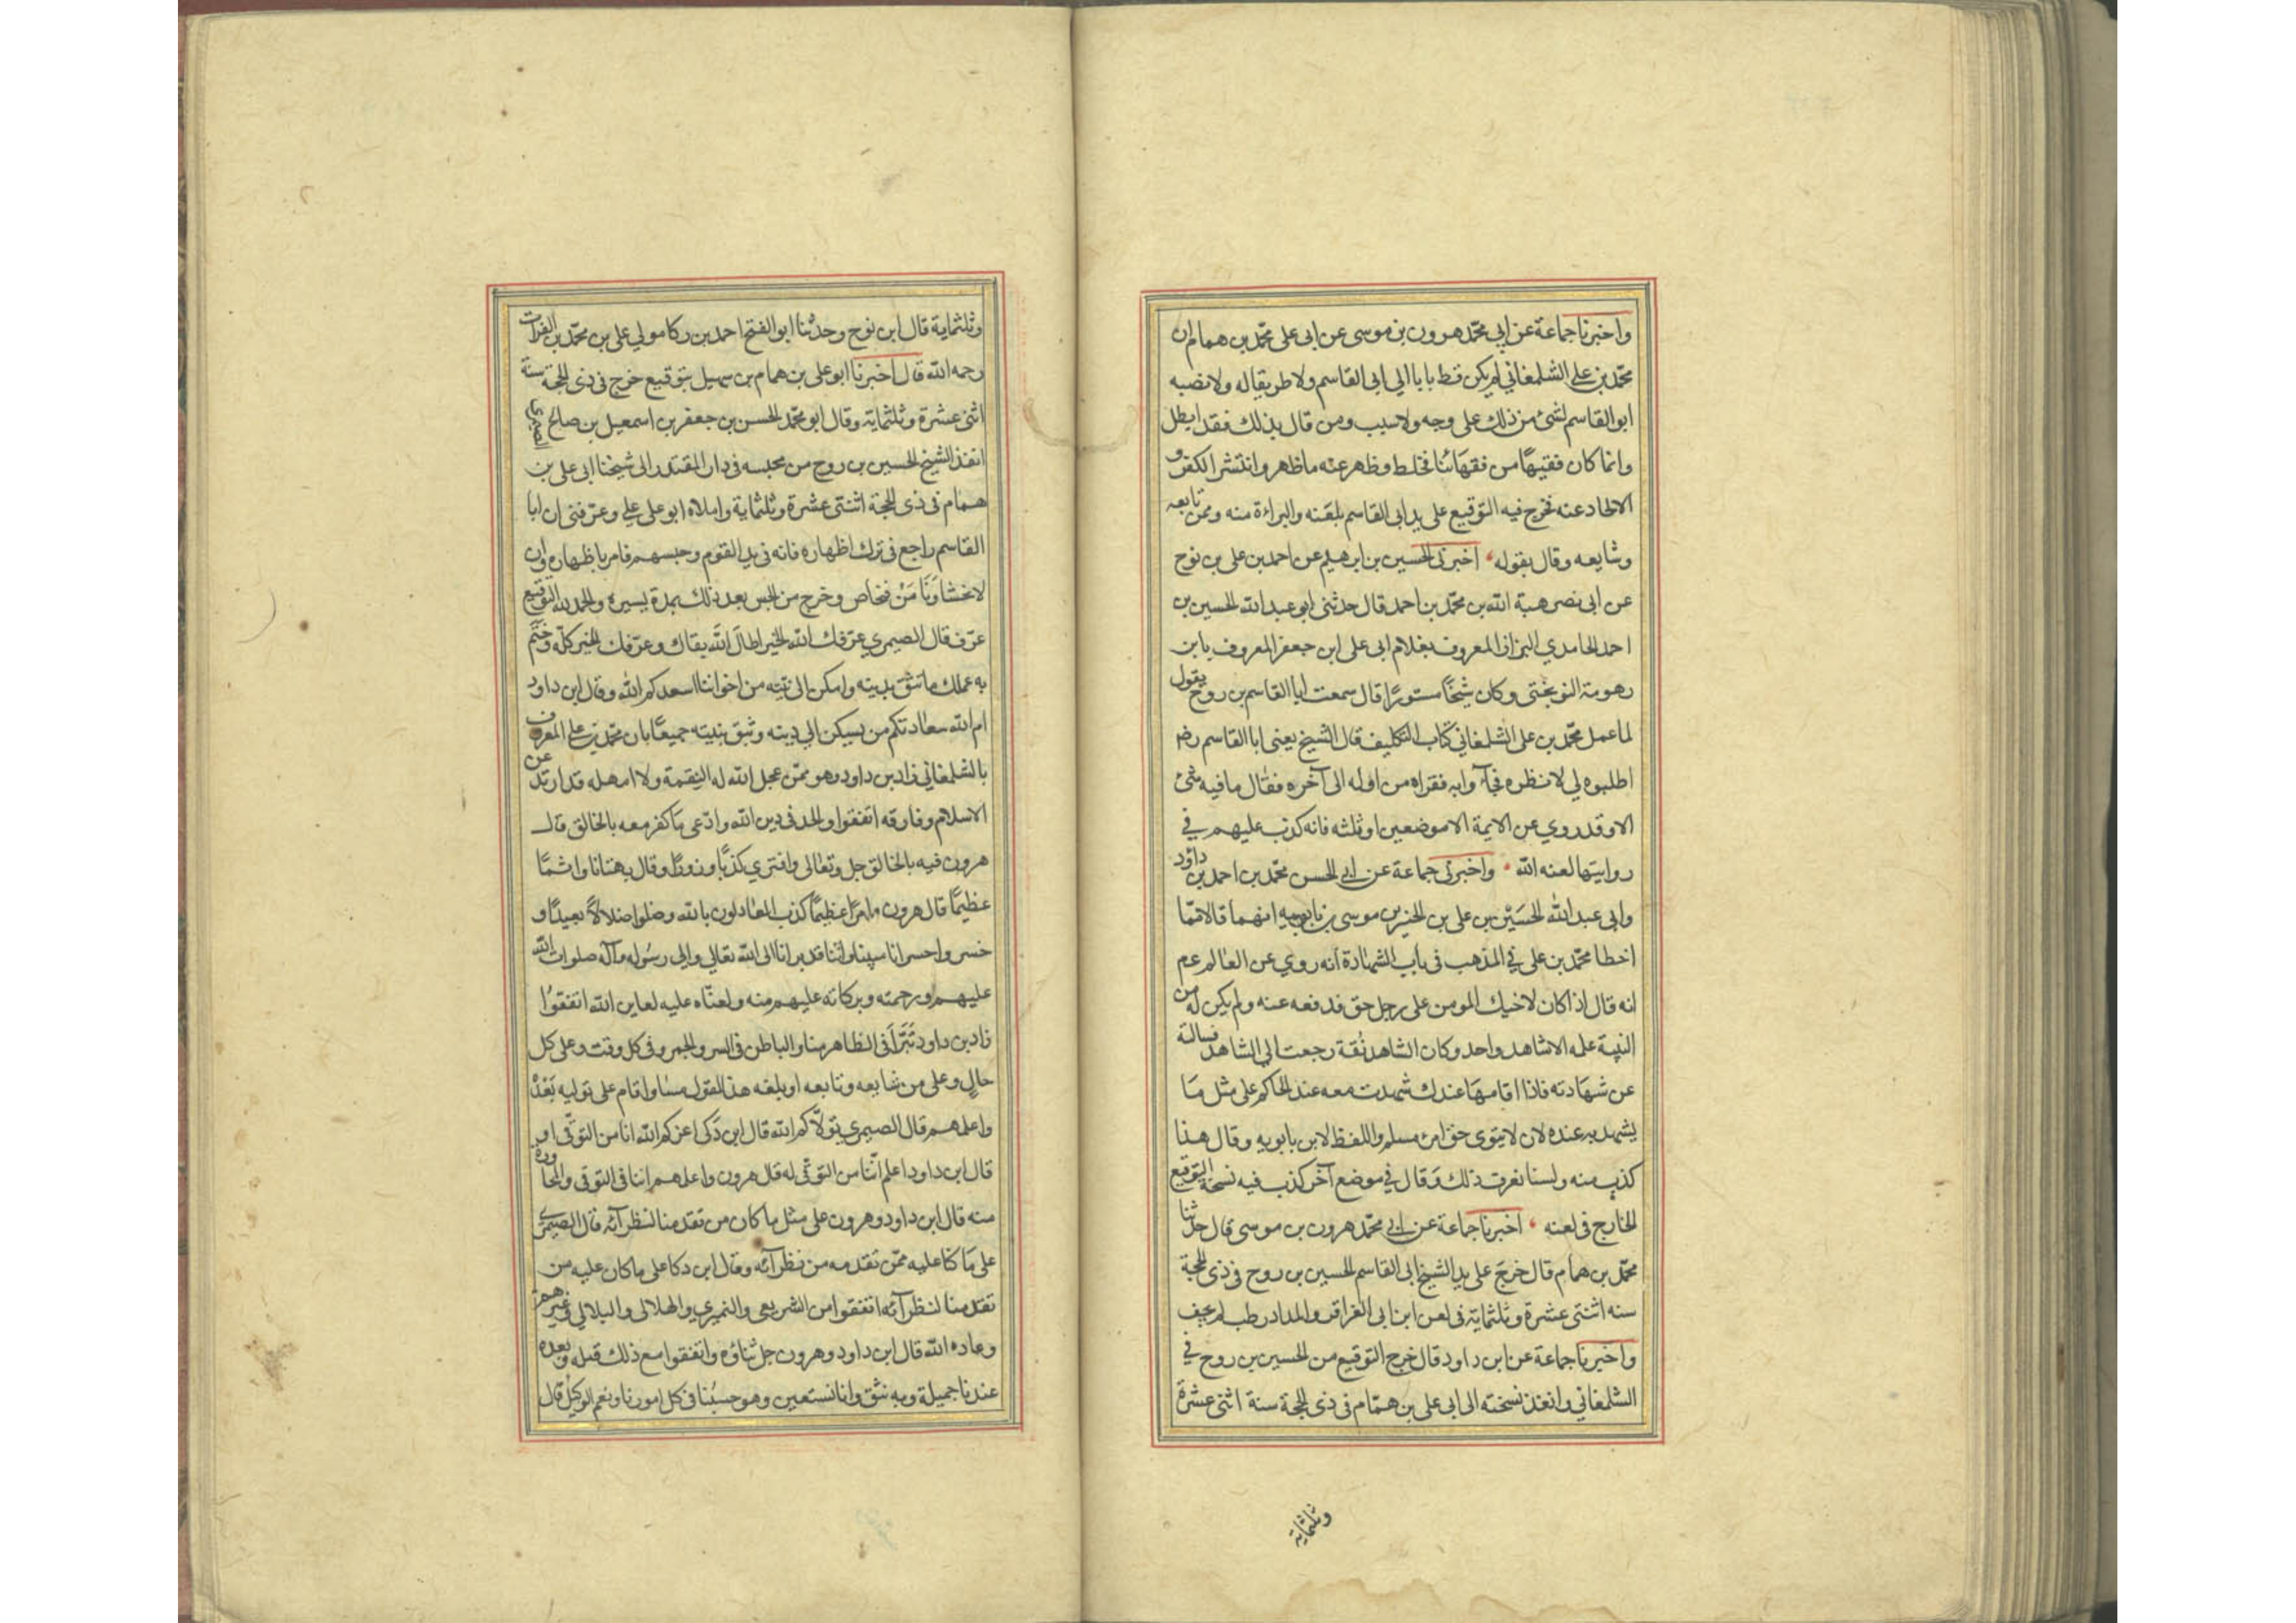 واخبرنا جماعة عن ابي محمّد هرون بن موسى عن ابى على محمّد بن همام ان
محمّد بن علي الشلمغاني لم يكن قط بابا الى ابى القاسم ولا طريقا له ولا نصبه
ابو القاسم لشئ من ذلك على وجه ولا سبب ومن قال بذلك فقد ابطل
وانما كان فقيهًا من فقهائنا فخلط وظهر عنه ما ظهر وانتشر الكفر و
الالحاد عنه فخرج فيه التوقيع على يد ابى القاسم بلعنه والبراءة منه وممن تابعه
وشايعه وقال بقوله اخبرنى الحسين بن ابرهيم عن احمد بن على بن نوح
عن ابى نصر هبة الله بن محمّد بن احمد قال حدثنى ابو عبد الله الحسين بن
احمد الحامدي البزاز المعروف بغلام ابى على ابن جعفر المعروف بابن
رهومة النوبختى وكان شيخًا مستورًا قال سمعت ابا القاسم بن روح يقول
لما عمل محمّد بن على الشلمغاني كتاب التكليف قال الشيخ يعنى ابا القاسم رضه
اطلبوه لي لانظره فجاؤا به فقراه من اوله الى آخره فقال ما فيه شئ
الا وقد روي عن الايمة الا موضعين او ثلثه فانه كذب عليهم في
روايتها لعنه الله واخبرنى جماعة عن ابي الحسن محمّد بن احمد بن داؤد
وابى عبد الله الحسَيْن بن على بن الحسين بن موسى بن بابويه انهما قالا ممّا
اخطا محمّد بن على في المذهب فى باب الشهادة انه روي عن العالم عم
انه قال اذا كان لاخيك المومن على رجل حق فدفعه عنه ولم يكن له من
البينة عليه الا شاهد واحد وكان الشاهد ثقة رجعت الى الشاهد فسالته
عن شهادته فاذا اقامها عندك شهدت معه عند الحاكم على مثل مَا
يشهد به عنده لان لا يتوى حق امرئ مسلم واللفظ لابن بابويه وقال هذا
كذب منه ولسنا نعرف ذلك وَقال في موضع آخر كذب فيه نسخة التوقيع
الخارج فى لعنه اخبرنا جماعة عن ابي محمّد هرون بن موسى قال حدثنا
محمّد بن همام قال خرجَ على يد الشيخ ابى القاسم الحسين بن روح فى ذى الحجة
سنه اثنتى عشرة وثلثماية فى لعن ابن ابى العزاقر والمداد رطب لم يجف
واخبرنا جماعة عن ابن داود قال خرج التوقيع من الحسين بن روح في
الشلمغاني وانفذ نسخته الى ابى على بن همّام فى ذى الحجة سنة اثنى عشرة
وثلثماية
وثلثماية قال ابن نوح وحدثنا ابو الفتح احمد بن ركا مولي على بن محمّد بن الفرات
رحمه الله قال اخبرنا ابو على بن همام بن سهيل بتوقيع خرج فى ذى الحجة سنة
اثنى عشرة وثلثماية وقال ابو محمّد الحسن بن جعفر بن اسمعيل بن صالح الصيمرى
انفذ الشيخ الحسين بن روح من محبسه فى دار المقتدر الى شيخنا ابى على بن
همام فى ذى الحجة اثنتى عشرة وثلثماية واملاه ابو على علي وعرّفنى ان ابا
القاسم راجع فى ترك اظهاره فانه فى يد القوم وحبسهم فامر باظهاره وان
لا يخشا وَيَامَنْ فتخلص وخرج من الحبس بعد ذلك بمدة يسيرة والحمد لله التوقيع
عرّف قال الصيمري عرّفك الله الخير اطالَ الله بقاك وعرّفك الخير كلّه وختم
به عملك من تثق بدينه وامكن الى نيّته من اخواننا اسعدكم الله وقال ابن داود
ام الله سعادتكم من يسكن الى دينه وتثق بنيته جميعًا بان محمّد بن علي المعروف
بالشلمغاني زاد بن داود وهو ممّن عجل الله له النِقمة ولا امهله قد ارتد عن
الاسلام وفارقه اتفقوا والحد فى دين الله وادّعى مَا كفر معه بالخالق قال
هرون فيه بالخالق جل وتعالى وافترى كذبًا وزورًا وقال بهتانا واثمًا
عظيمًا قال هرون وامرًا عظيمًا كذب العادلون بالله وضلوا ضلالاً بعيدًا و
خسروا خسرانا مبينا واننا قد برانا الى الله تعالي والى رسُوله وآله صلوات الله
عليهم ورحمته وبركاته عليهم منه ولعنّاه عليه لعاين الله اتفقوُا
زاد بن داود تُتَرَّا فى الظاهر منا والباطن فى السر والجهر وفى كل وقت وعلى كل
حالٍ وعلى من شايعه وتابعه او بلغه هذا القول منا واقام على توليه بَعْدَهُ
واعلمهم قال الصيمري تولّاكم الله قال ابن ذكى اعزكم الله انا من التوقّى او
قال ابن داود اعلم انّنا من التوقّى له قال هرون واعلمهم اننا فى التوقى والمحاورة
منه قال ابن داود وهرون على مثل ما كان من تقدمنا لنظرآئه قال الصيمرى
على مَا كنّا عليه ممّن تقدمه من نظرآئه وقال ابن دكا على ما كان عليه من
تقدمنا لنظرآئه اتفقوا من الشريعى والنميري والهلالى والبلالي وغيرهم
وعاده الله قال ابن داود وهرون جل ثناؤه واتفقوا مع ذلك قبله وبعده
عندنا جميلة وبه نثق وايا نستعين وهو حسبُنا فى كل امورنا ونعم الوكيلُ قال